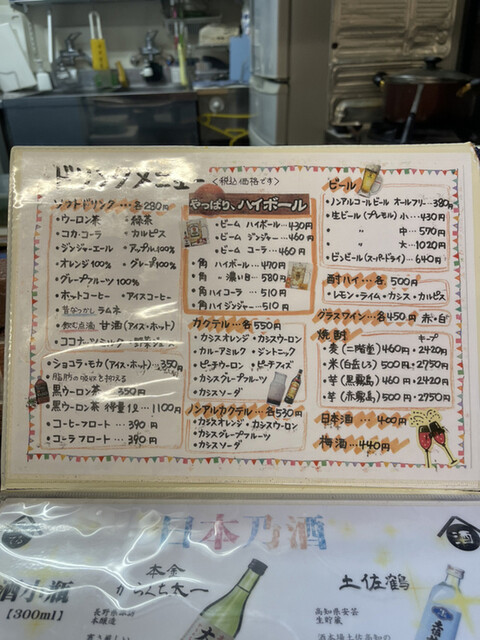 ドリンクメニュー 〈税込価格です〉
ソフトドリンク・・・各280円
・ウーロン茶 ・緑茶
・コカ・コーラ ・カルピス
・ジンジャーエール ・アップル100%
・オレンジ100% ・グレープ100%
・グレープフルーツ100%
・ホットコーヒー ・アイスコーヒー
・昔なつかし ラムネ
・飲む点滴 甘酒(アイス・ホット)
・ココナッツミルク
・ショコラ・モカ(アイス・ホット)・・350円
・脂肪の吸収を抑える
黒ウーロン茶 350円
・黒ウーロン茶 特量12・・・1100円
・コーヒーフロート・・・390円
・コーラフロート・・・390円
やっぱり、ハイボール
・ビーム ハイボール・・・430円
・ビーム ジンジャー・・・460円
・ビーム コーラ・・・460円
・角 ハイボール・・・470円
・角 〃 濃いめ・・・580円
・角 ハイコーラ・・・510円
・角 ハイジンジャー・・・510円
カクテル・・・各550円
・カシスオレンジ ・カシスウーロン
・カルーアミルク ・ジントニック
・ピーチウーロン ・ピーチフィズ
・カシスグレープフルーツ
・カシスソーダ
ノンアルカクテル・・・各530円
・カシスオレンジ ・カシスウーロン
・カシスグレープフルーツ
・カシスソーダ
ビール
・ノンアルコールビール オールフリー・・・380円
・生ビール(プレモル) 小・・・430円
・ 〃 中・・・570円
・ 〃 大・・・1020円
・ビンビール(スーパードライ) 640円
酎ハイ・・・各500円
・レモン・ライム・カシス・カルピス
グラスワイン・・・各450円 赤・白
焼酎 キープ
・麦(二階堂) 460円・2420円
・米(白岳しろ) 500円・2750円
・芋(黒霧島) 460円・2420円
・芋(赤霧島) 500円・2750円
日本酒・・・400円
梅酒・・・440円
日本乃酒
酒
酒小瓶
【300ml】
本金
からくち太一
長野県諏訪
本醸造
土佐鶴
高知県安芸
生貯蔵